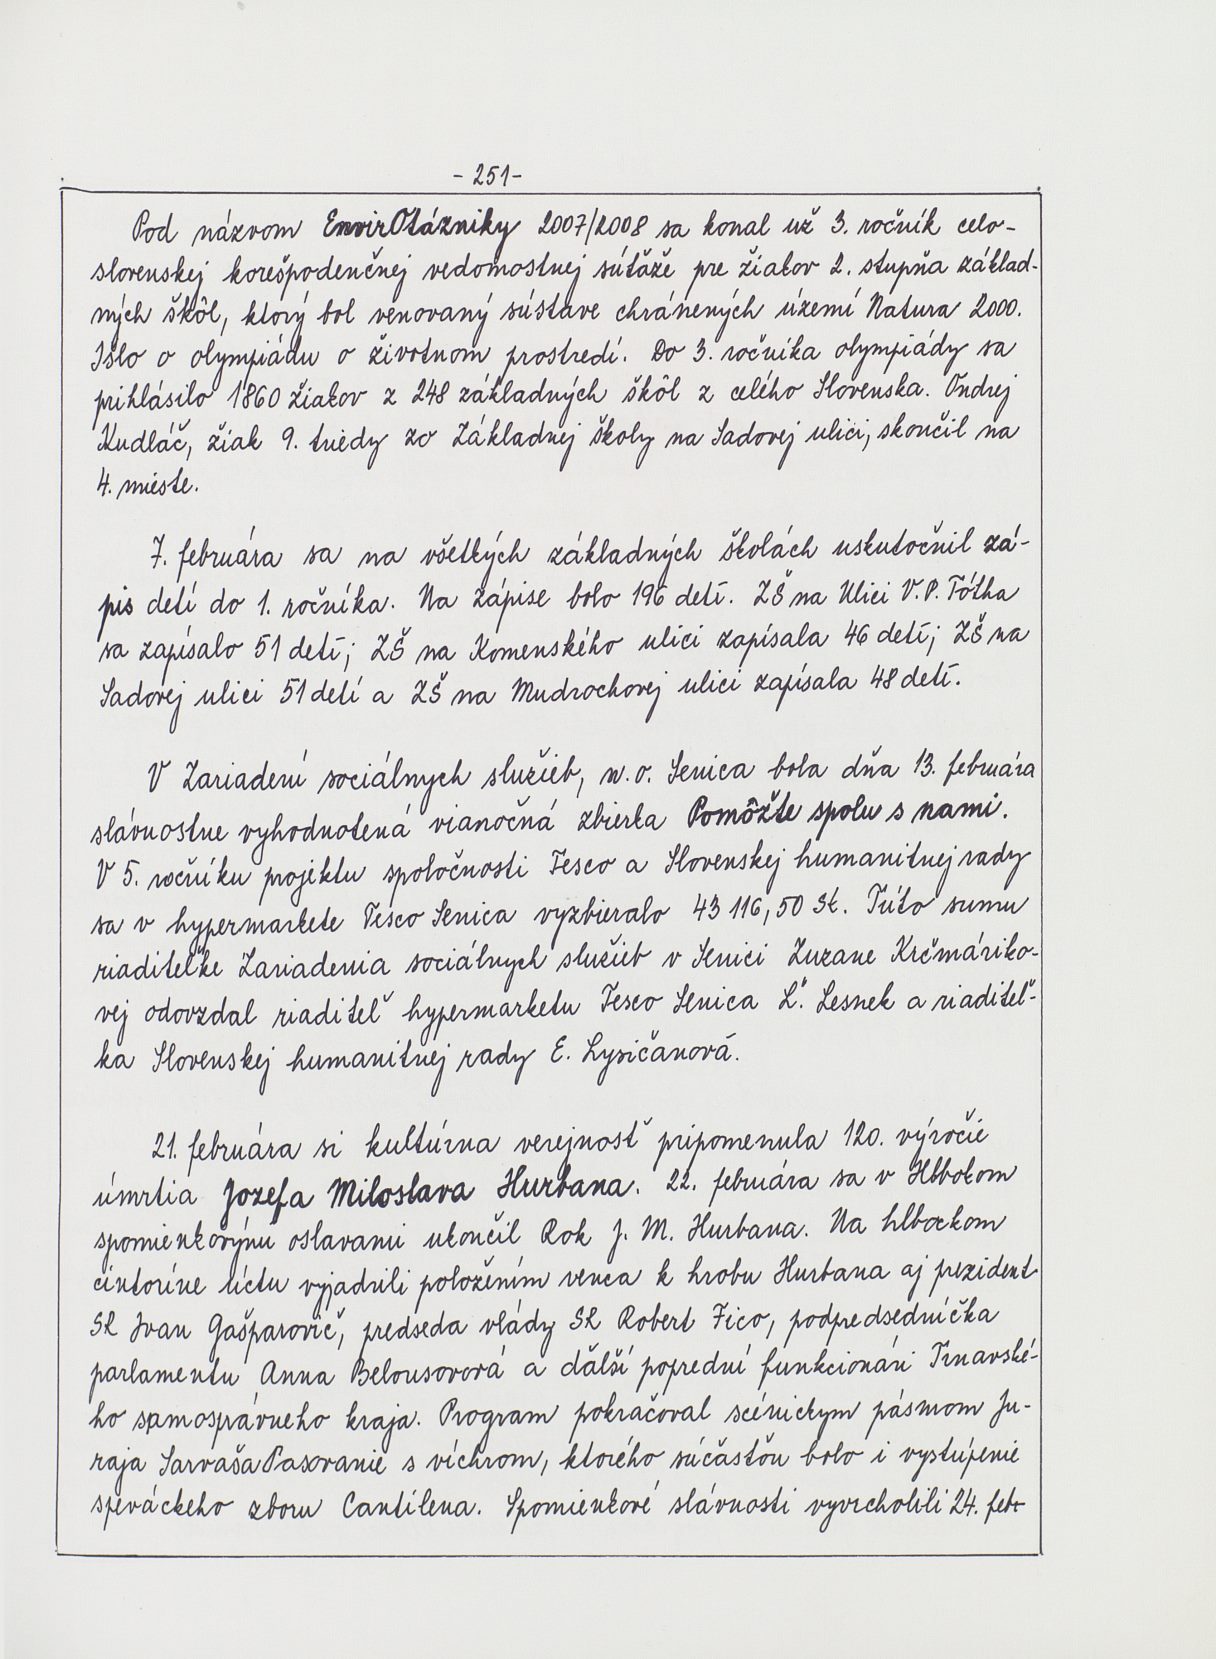 - 251 -
Pod názvom EnvirOtázniky 2007/2008 sa konal už 3. ročník celo-
slovenskej korešpodenčnej vedomostnej súťaže pre žiakov 2. stupňa základ-
ných škôl, ktorý bol venovaný sústave chránených území Natura 2000.
Išlo o olympiádu o životnom prostredí. Do 3. ročníka olympiády sa
prihlásilo 1860 žiakov z 248 základných škôl z celého Slovenska. Ondrej
Kudláč, žiak 9. triedy zo Základnej školy na Sadovej ulici, skončil na
4. mieste.
7. februára sa na všetkých základných školách uskutočnil zá-
pis detí do 1. ročníka. Na zápise bolo 196 detí. ZŠ na Ulici V. P. Tótha
sa zapísalo 51 detí; ZŠ na Komenského ulici zapísala 46 detí; ZŠ na
Sadovej ulici 51 detí a ZŠ na Mudrochovej ulici zapísala 48 detí.
V Zariadení sociálnych služieb, n.o. Senica bola dňa 13. februára
slávnostne vyhodnotená vianočná zbierka Pomôžte spolu s nami.
V 5. ročníku projektu spoločnosti Tesco a Slovenskej humanitnej rady
sa v hypermarkete Tesco Senica vyzbieralo 43 116,50 Sk. Túto sumu
riaditeľke Zariadenia sociálnych služieb v Senici Zuzane Krčmáriko-
vej odovzdal riaditeľ hypermarketu Tesco Senica Ľ. Lesnek a riaditeľ-
ka Slovenskej humanitnej rady E. Lysičanová.
21. februára si kultúrna verejnosť pripomenula 120. výročie
úmrtia Jozefa Miloslava Hurbana. 22. februára sa v Hlbokom
spomienkovými oslavami ukončil Rok J. M. Hurbana. Na hlbockom
cintoríne úctu vyjadrili položením venca k hrobu Hurbana aj prezident
SR Ivan Gašparovič, predseda vlády SR Robert Fico, podpredsedníčka
parlamentu Anna Belousovová a ďalší poprední funkcionári Trnavské-
ho samosprávneho kraja. Program pokračoval scénickym pásmom Ju-
raja Sarvaša Pasovanie s víchrom, ktorého súčasťou bolo i vystúpenie
speváckeho zboru Cantilena. Spomienkové slávnosti vyvrcholili 24. feb-